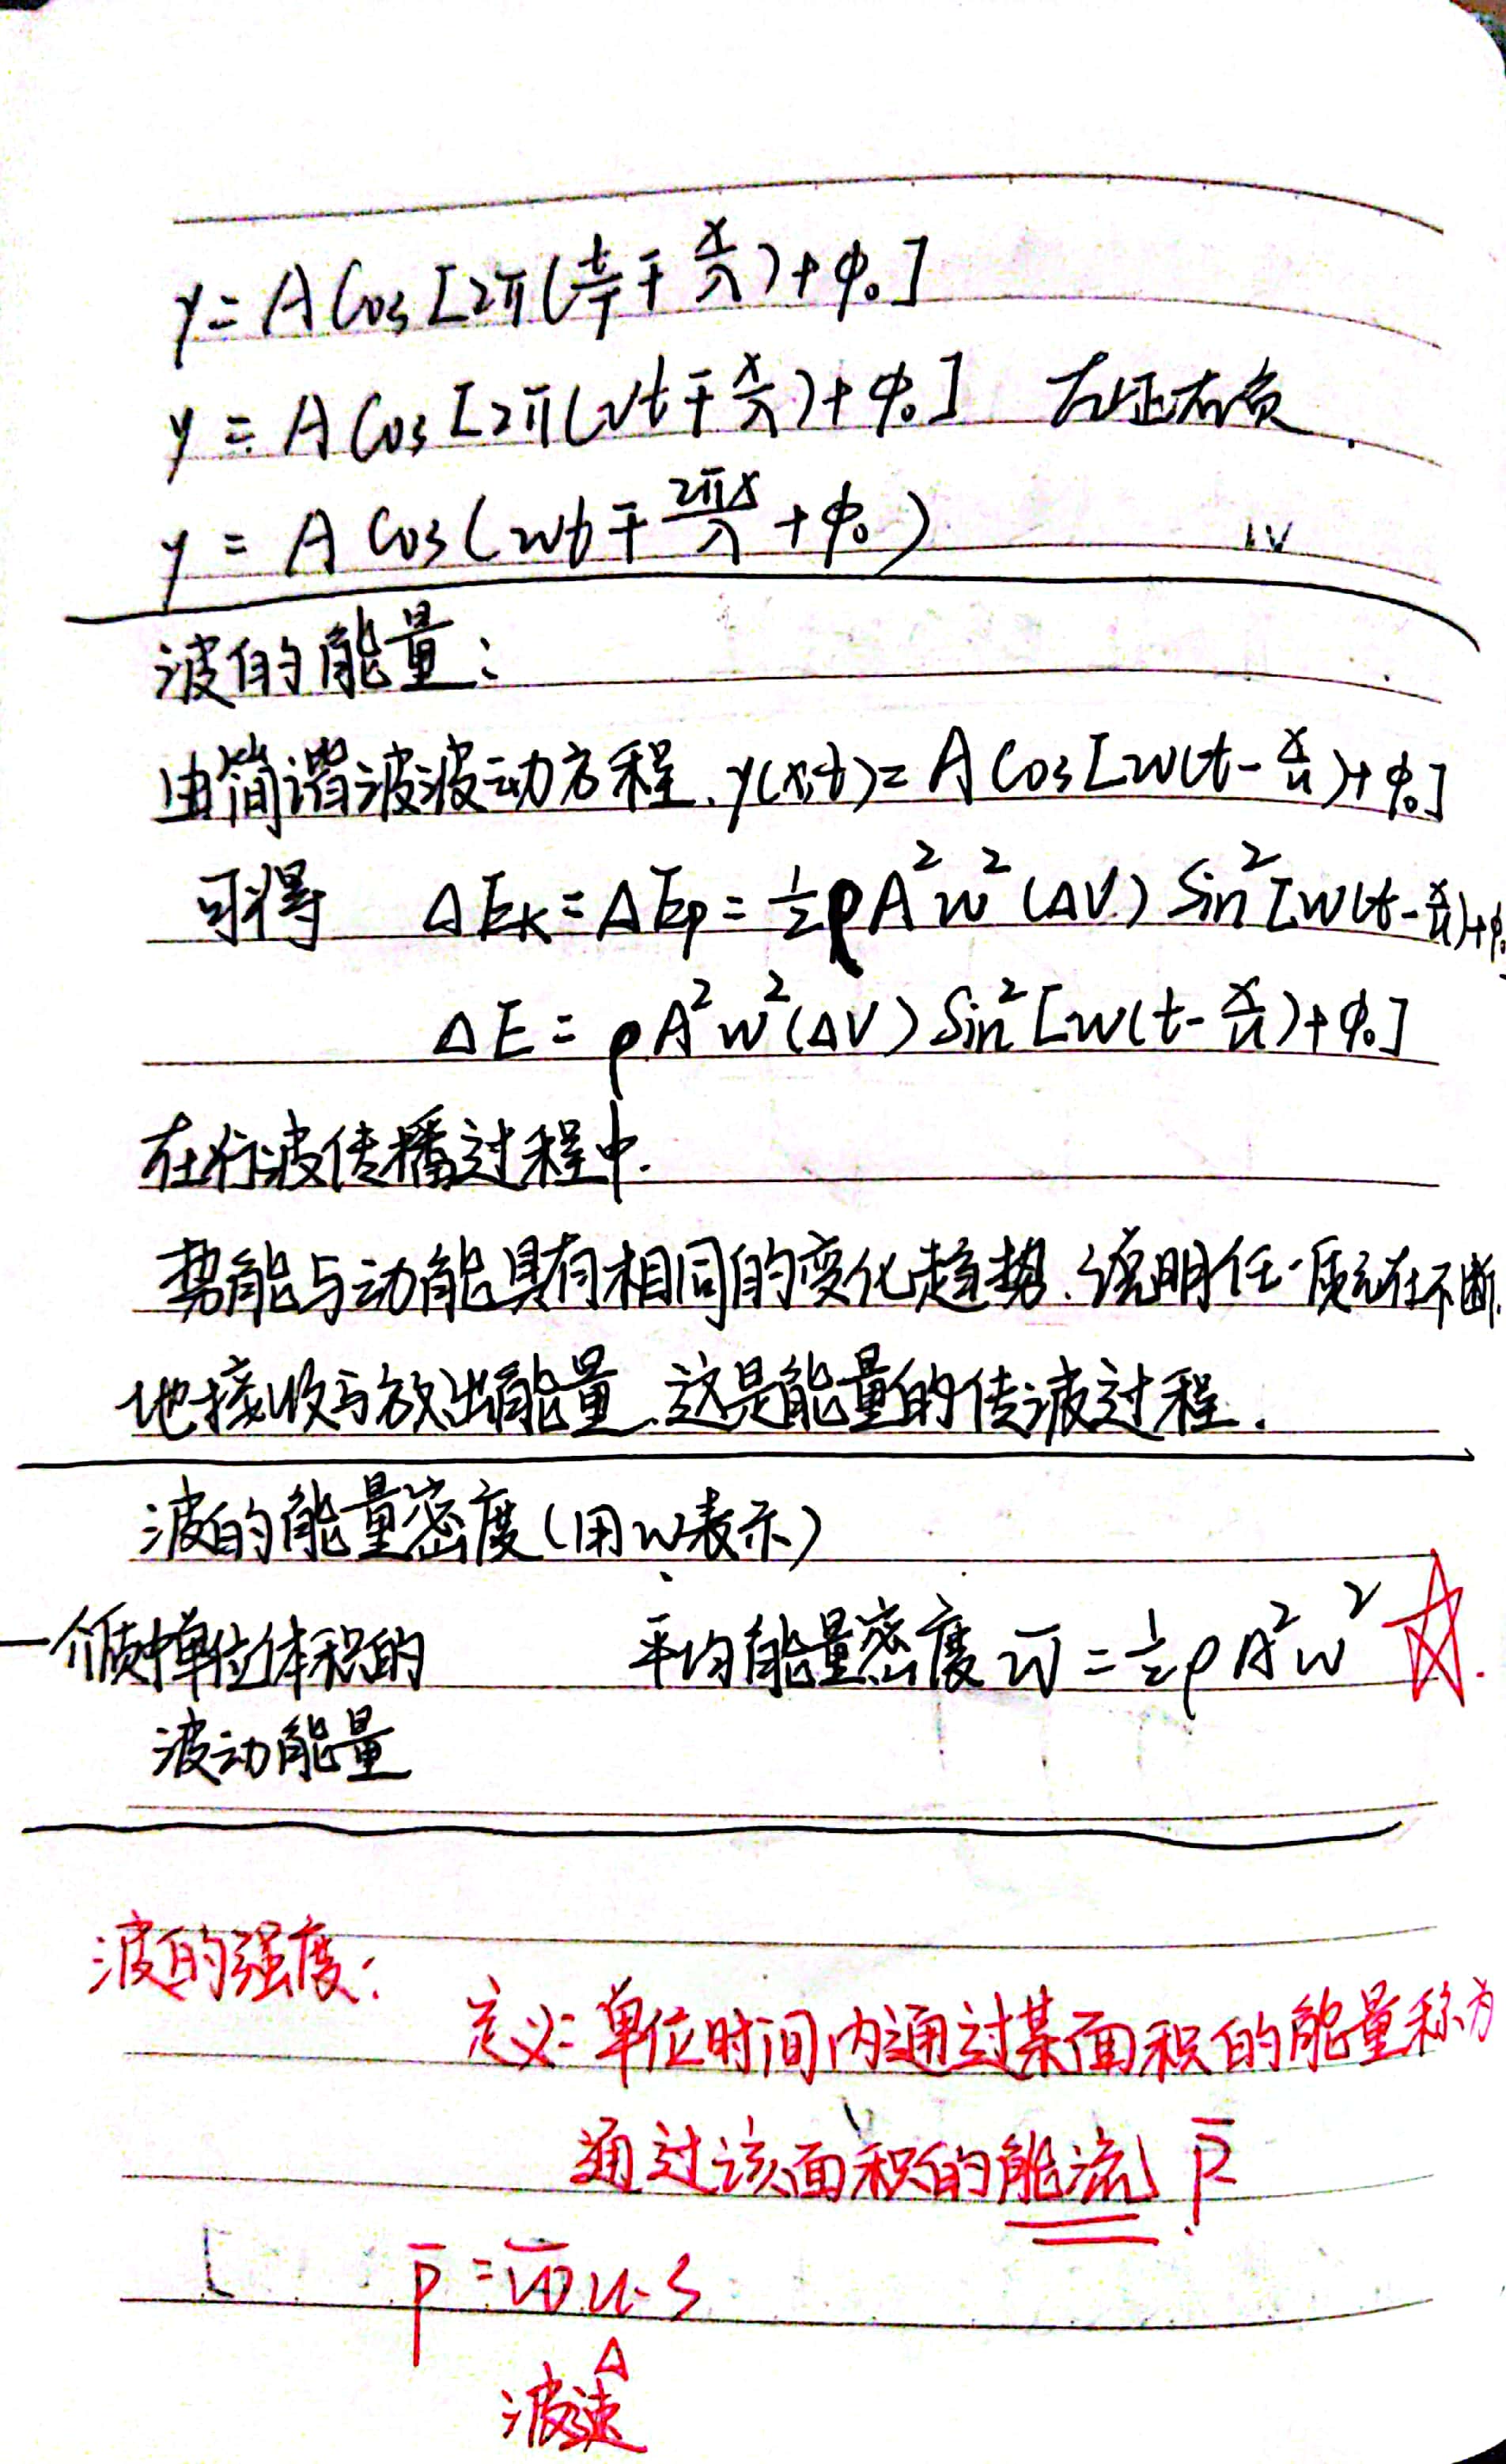 y = A cos[2π(t/T ∓ x/λ)+φ₀]
y = A cos[2π(νt ∓ x/λ)+φ₀] 左正右负
y = A cos(ωt ∓ 2πx/λ + φ₀)
波的能量:
由简谐波波动方程. y(x,t)= A cos[ω(t- x/u)+φ₀]
可得 ΔEk = ΔEp = ½ρA²ω²(ΔV) sin²[ω(t- x/u)+φ₀
ΔE = ρA²ω²(ΔV) sin²[ω(t- x/u)+φ₀]
在行波传播过程中.
势能与动能具有相同的变化趋势.说明任一质元在不断
地接收与放出能量.这是能量的传波过程.
波的能量密度(用w表示)
一介质中单位体积的 平均能量密度 w̄ = ½ρA²ω² ☆.
波动能量
波的强度:
定义:单位时间内通过某面积的能量称为
通过该面积的能流 P̄
P̄ = w̄u·S
Δ
波速